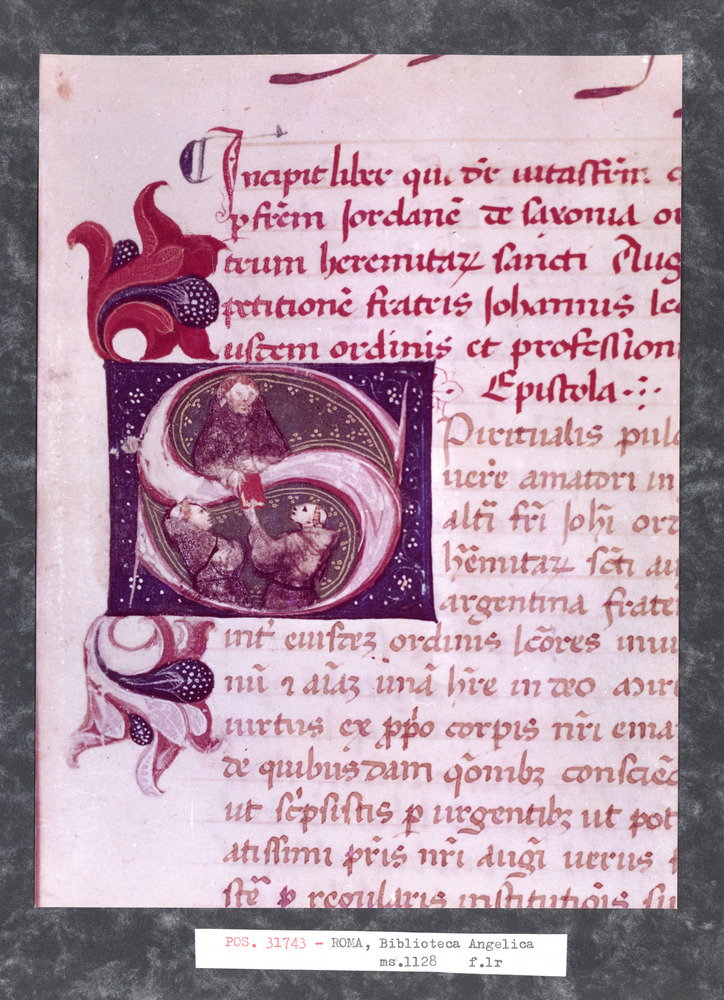 Incipit liber qui dr̄ uitasfrm̄
p frēm Jordanē de saxonia
trum heremitaꝝ sancti Aug
petitionē fratris Johannis lec
iusdem ordinis et profession
Epistola
Piritualis pulc
uere amatori in
altī frī Johī ord
hēmitaꝝ scī au
argentina frate
int̄ eiusdeꝫ ordinis lcōres inui
nū ⁊ aīaꝫ unā hr̄e in deo
uirtus ex ꝓpo corpis nr̄i ema
de quibusdam qōnibꝫ consciēc
ut sc̄psistis ꝑ urgentibꝫ ut pot
atissimi pr̄is nr̄i augī uerus
regularis institutiōis
POS. 31743 - ROMA, Biblioteca Angelica
ms.1128 f.1r